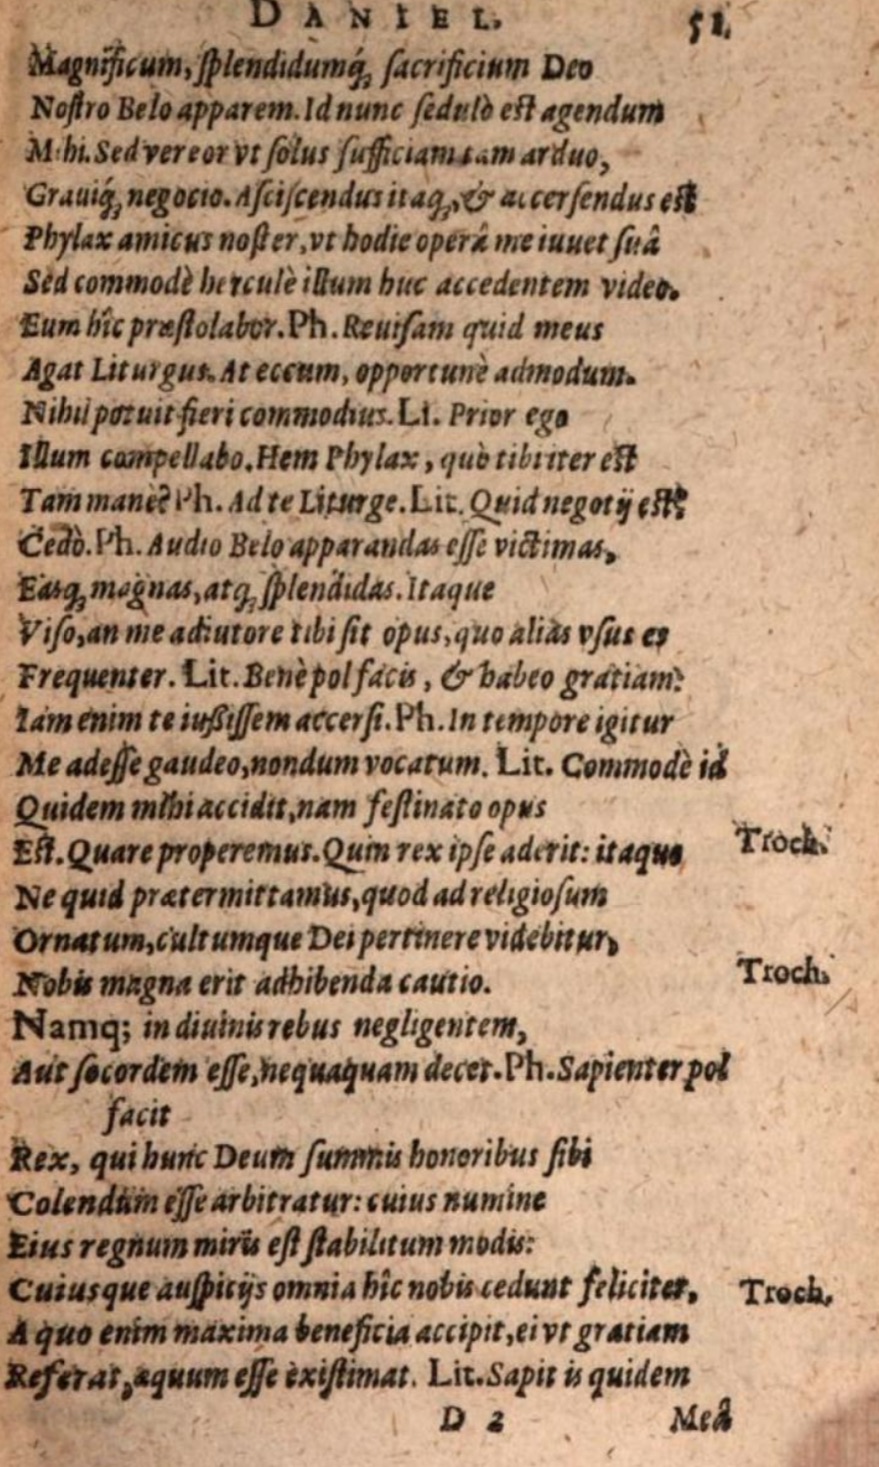 DANIEL. 51.
Magnificum, ſplendidumq́; ſacrificium Deo
Noſtro Belo apparem. Id nunc ſedulò eſt agendum
Mihi. Sed vereor vt ſolus ſufficiam tam arduo,
Grauiq́; negocio. Aſciſcendus itaq;, & accerſendus eſt
Phylax amicus noſter, vt hodie operâ me iuuet ſuâ
Sed commodè herculè illum huc accedentem video.
Eum hîc præſtolabor. Ph. Reuiſam quid meus
Agat Liturgus. At eccum, opportunè admodum.
Nihil potuit fieri commodius. Li. Prior ego
Illum compellabo. Hem Phylax, quò tibi iter eſt
Tam manè? Ph. Ad te Liturge. Lit. Quid negotij eſt?
Cedò. Ph. Audio Belo apparandas eſſe victimas,
Easq; magnas, atq; ſplendidas. Itaque
Viſo, an me adiutore tibi ſit opus, quo aliàs vſus es
Frequenter. Lit. Benè pol facis, & habeo gratiam:
Iam enim te iuſsiſſem accerſi. Ph. In tempore igitur
Me adeſſe gaudeo, nondum vocatum. Lit. Commodè id
Quidem mihi accidit, nam feſtinato opus
Eſt. Quare properemus. Quin rex ipſe aderit: itaque Troch.
Ne quid prætermittamus, quod ad religioſum
Ornatum, cultumque Dei pertinere videbitur,
Nobis magna erit adhibenda cautio. Troch.
Namq; in diuinis rebus negligentem,
Aut ſocordem eſſe, nequaquam decet. Ph. Sapienter pol
facit
Rex, qui hunc Deum ſummis honoribus ſibi
Colendum eſſe arbitratur: cuius numine
Eius regnum miris eſt ſtabilitum modis:
Cuiusque auſpicijs omnia hîc nobis cedunt feliciter, Troch.
A quo enim maxima beneficia accipit, ei vt gratiam
Referat, æquum eſſe exiſtimat. Lit. Sapit is quidem
D 2 Meâ